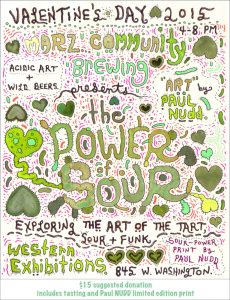 VALENTINE'S DAY 2015
4-8 PM
MARZ COMMUNITY
BREWING
ACIDIC ART
+
WILD BEERS.
presents
"ART" by
PAUL
NUDD.
the
POWER
of
SOUR
EXPLORING THE ART OF THE TART,
SOUR + FUNK.
Western
Exhibitions
SOUR-POWER
PRINT BY
PAUL NUDD
845 W. WASHINGTON.
$15 suggested donation
includes tasting and Paul NUDD limited edition print